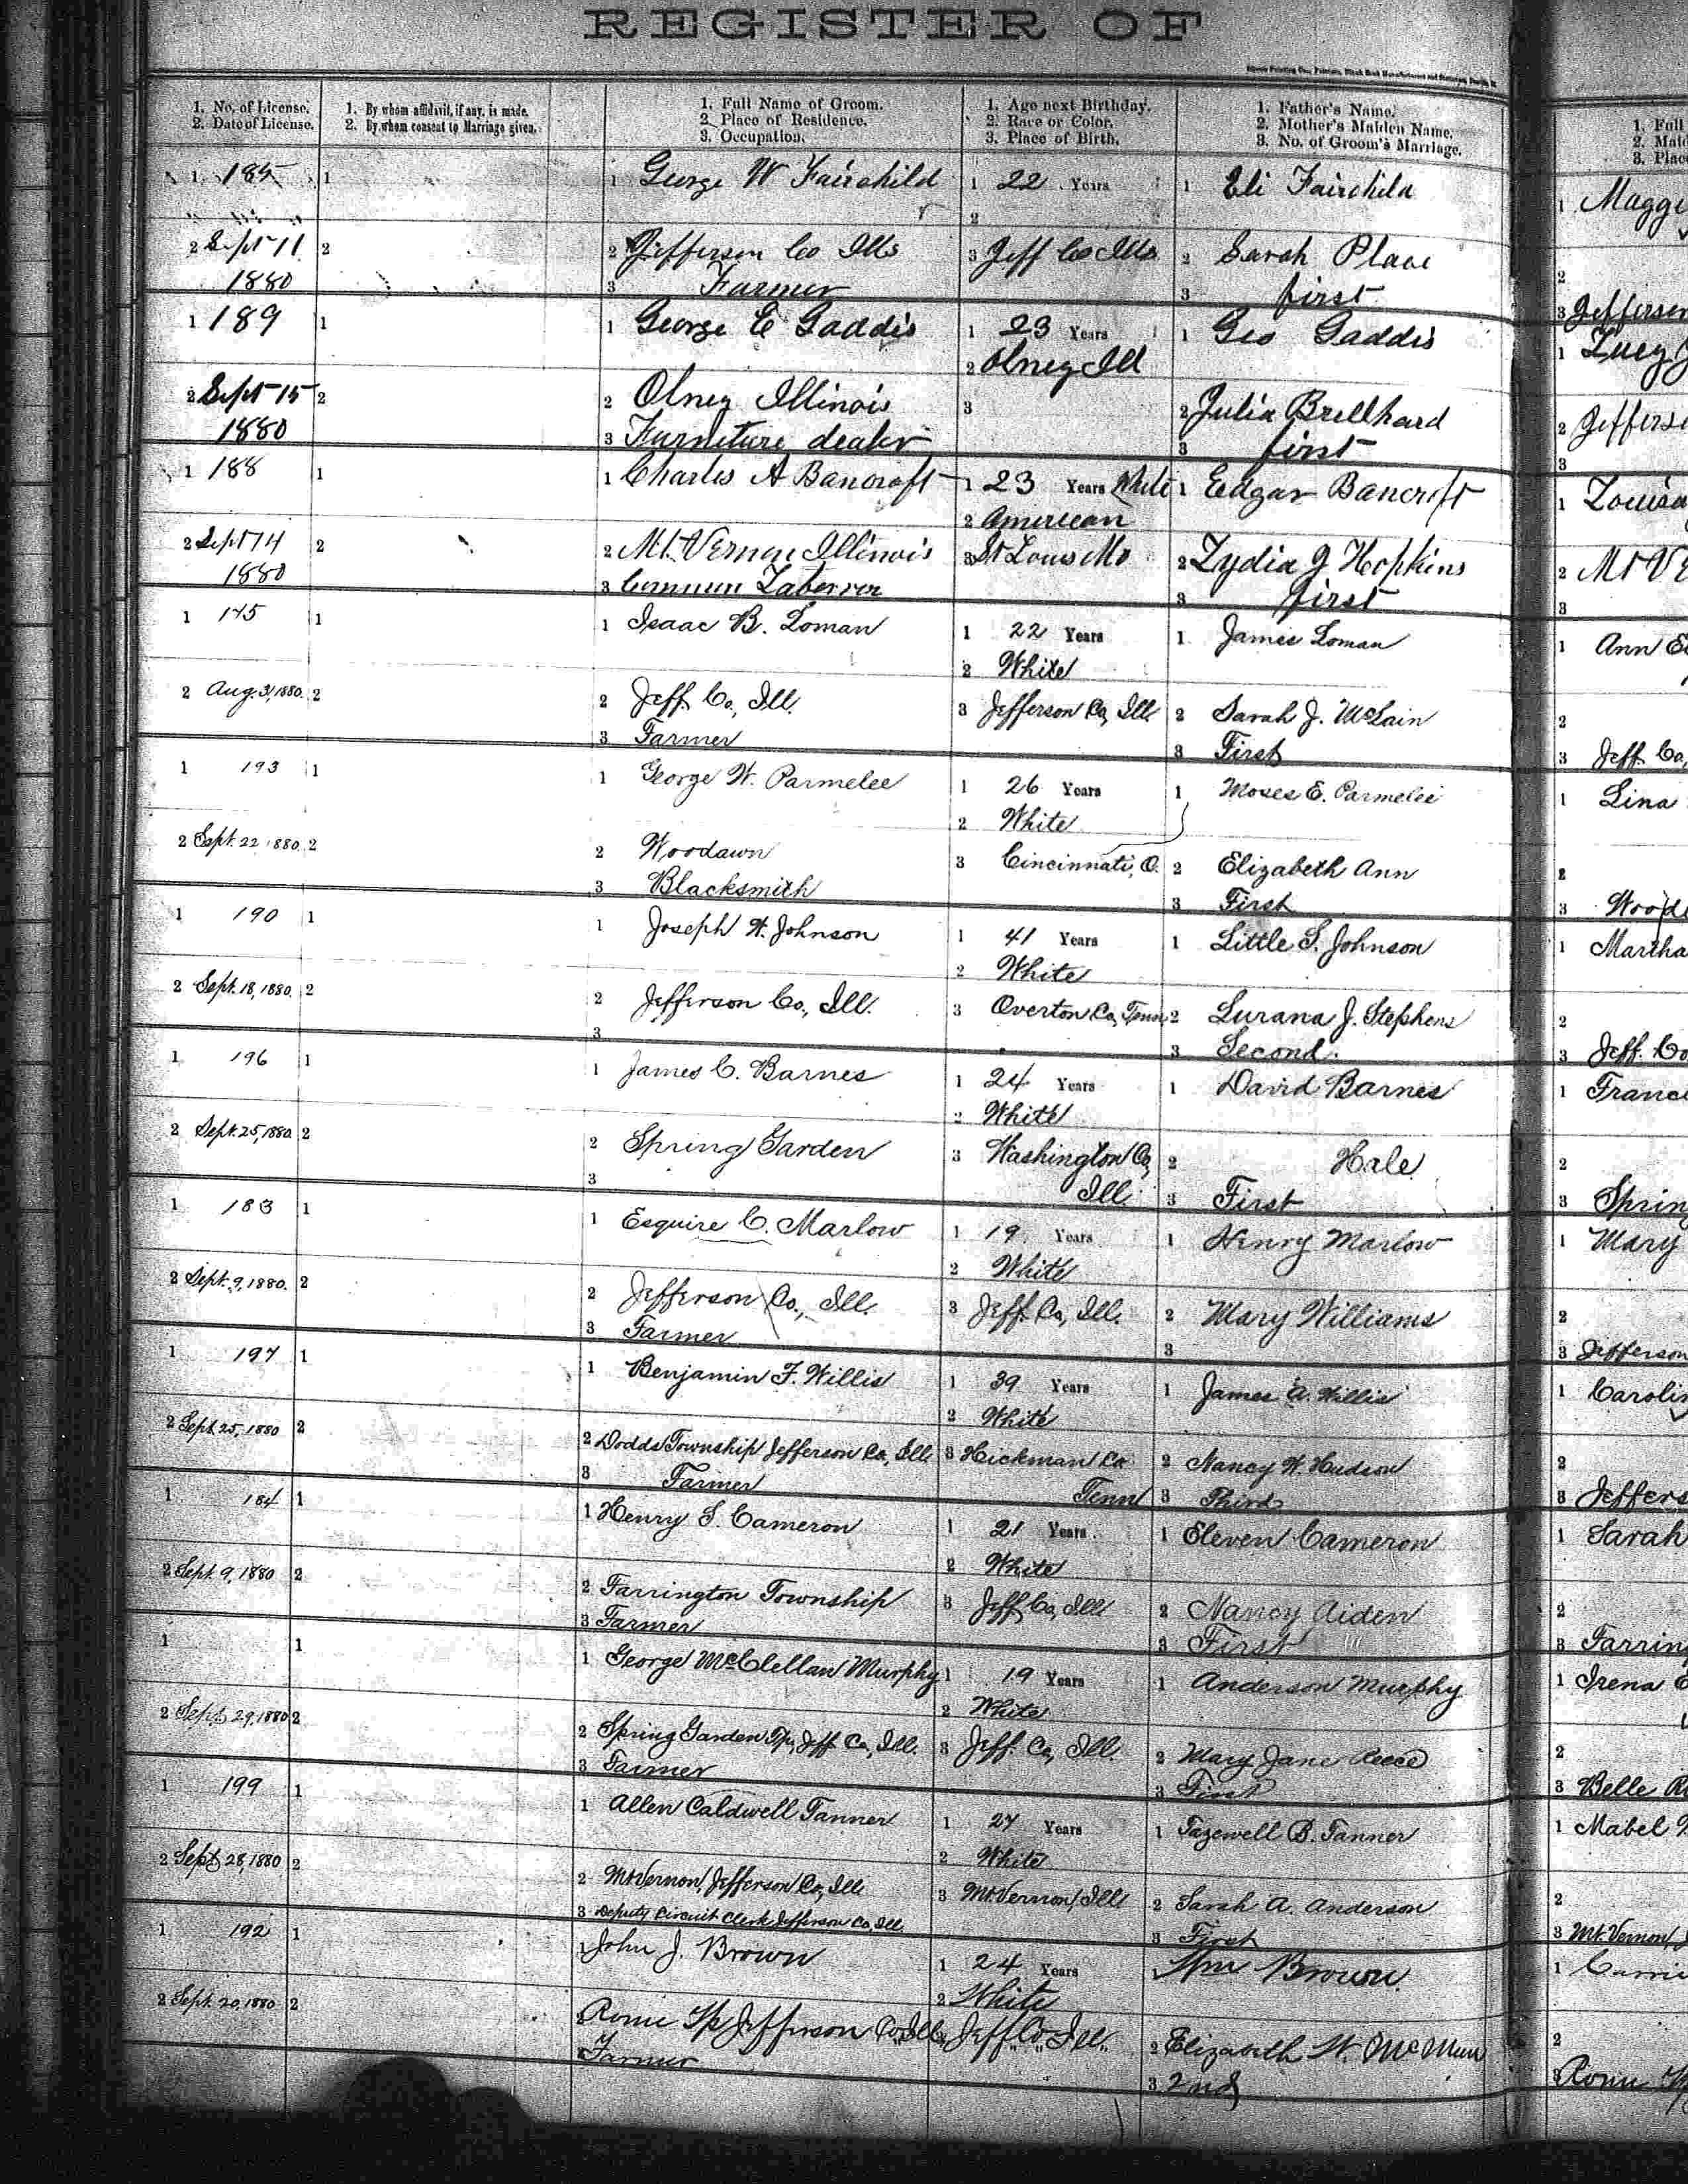 REGISTER OF
1. No. of License.
2. Date of License.
1. By whom affidavit, if any, is made.
2. By whom consent to Marriage given.
1. Full Name of Groom.
2. Place of Residence.
3. Occupation.
1. Age next Birthday.
2. Race or Color.
3. Place of Birth.
1. Father's Name.
2. Mother's Maiden Name.
3. No. of Groom's Marriage.
1. Full
2. Maid
3. Place
1 185 1 1 George W Fairchild 1 22 Years 1 Eli Fairchild 1 Maggi
2
2 Sept 11 2 2 Jefferson Co Ills 3 Jeff Co Ills 2 Sarah Place 2
1880 3 Farmer 3 first 3 Jefferson
1 189 1 1 George E Gaddis 1 23 Years 1 Geo Gaddis 1 Lucy
2 Olney Ill
2 Sept 15 2 2 Olney Illinois 3 2 Julia Brellhard 2 Jefferso
1880 3 Furniture dealer 3 first 3
1 188 1 1 Charles A Bancroft 1 23 Years White 1 Edgar Bancroft 1 Louisa
2 American
2 Sept 14 2 2 Mt. Vernon Illinois 3 St Louis Mo 2 Lydia J Hopkins 2 Mt Ve
1880 3 Common Laborror 3 first 3
1 175 1 1 Isaac B. Loman 1 22 Years 1 James Loman 1 Ann E
2 White
2 Aug. 31, 1880. 2 2 Jeff Co., Ill. 3 Jefferson Co, Ill 2 Sarah J. McLain 2
3 Farmer 3 First 3 Jeff. Co,
1 193 1 1 George W. Parmelee 1 26 Years 1 Moses E. Parmelee 1 Lina
2 White
2 Sept. 22 1880. 2 2 Woodawn 3 Cincinnati, O. 2 Elizabeth Ann 2
3 Blacksmith 3 First 3 Wood
1 190 1 1 Joseph W. Johnson 1 41 Years 1 Little S. Johnson 1 Martha
2 White
2 Sept. 18, 1880. 2 2 Jefferson Co., Ill. 3 Overton Co, Tenn 2 Lurana J. Stephens 2
3 3 Second. 3 Jeff. Co
1 196 1 1 James C. Barnes 1 24 Years 1 David Barnes 1 France
2 White
2 Sept. 25, 1880. 2 2 Spring Garden 3 Washington Co, 2 Hale 2
3 Ill. 3 First 3 Spring
1 183 1 1 Esquire C. Marlow 1 19 Years 1 Henry Marlow 1 Mary
2 White
2 Sept. 9, 1880. 2 2 Jefferson Co., Ill. 3 Jeff. Co, Ill. 2 Mary Williams 2
3 Farmer 3 3 Jefferson
1 197 1 1 Benjamin F. Willis 1 39 Years 1 James A. Willis 1 Carolin
2 White
2 Sept. 25, 1880 2 2 Dodds Township Jefferson Co, Ill 3 Hickman Co 2 Nancy W. Hudson 2
3 Farmer Tenn 3 Third 3 Jeffers
1 184 1 1 Henry S. Cameron 1 21 Years 1 Eleven Cameron 1 Sarah
2 White
2 Sept. 9, 1880 2 2 Farrington Township 3 Jeff Co, Ill 2 Nancy Aiden 2
3 Farmer 3 First 3 Farring
1 1 1 George McClellan Murphy 1 19 Years 1 Anderson Murphy 1 Irena E
2 White
2 Sept 29, 1880 2 2 Spring Garden Tp, Jeff Co, Ill. 3 Jeff. Co, Ill 2 Mary Jane Reece 2
3 Farmer 3 First 3 Belle R
1 199 1 1 Allen Caldwell Tanner 1 27 Years 1 Tazewell B. Tanner 1 Mabel
2 White
2 Sept 28, 1880 2 2 Mt Vernon, Jefferson Co, Ill 3 Mt. Vernon, Ill 2 Sarah A. Anderson 2
3 Deputy Circuit Clerk Jefferson Co, Ill. 3 First 3 Mt. Vernon, J
1 192 1 1 John J. Brown 1 24 Years 1 Wm Brown. 1 Carrie
2 White
2 Sept. 20, 1880 2 2 Rome Tp Jefferson Co, Ills 3 Jeff Co Ill. 2 Elizabeth W. McMurr 2
Farmer 3 2nd 3 Rome Tp